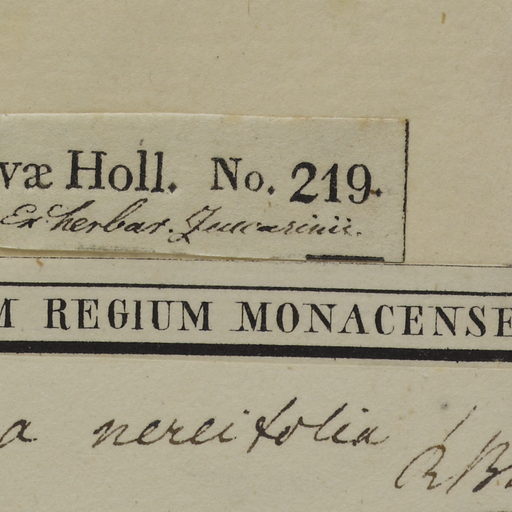 væ Holl. No. 219.
Ex herbar. Zuccarinii.
M REGIUM MONACENSE
a nereifolia R Br